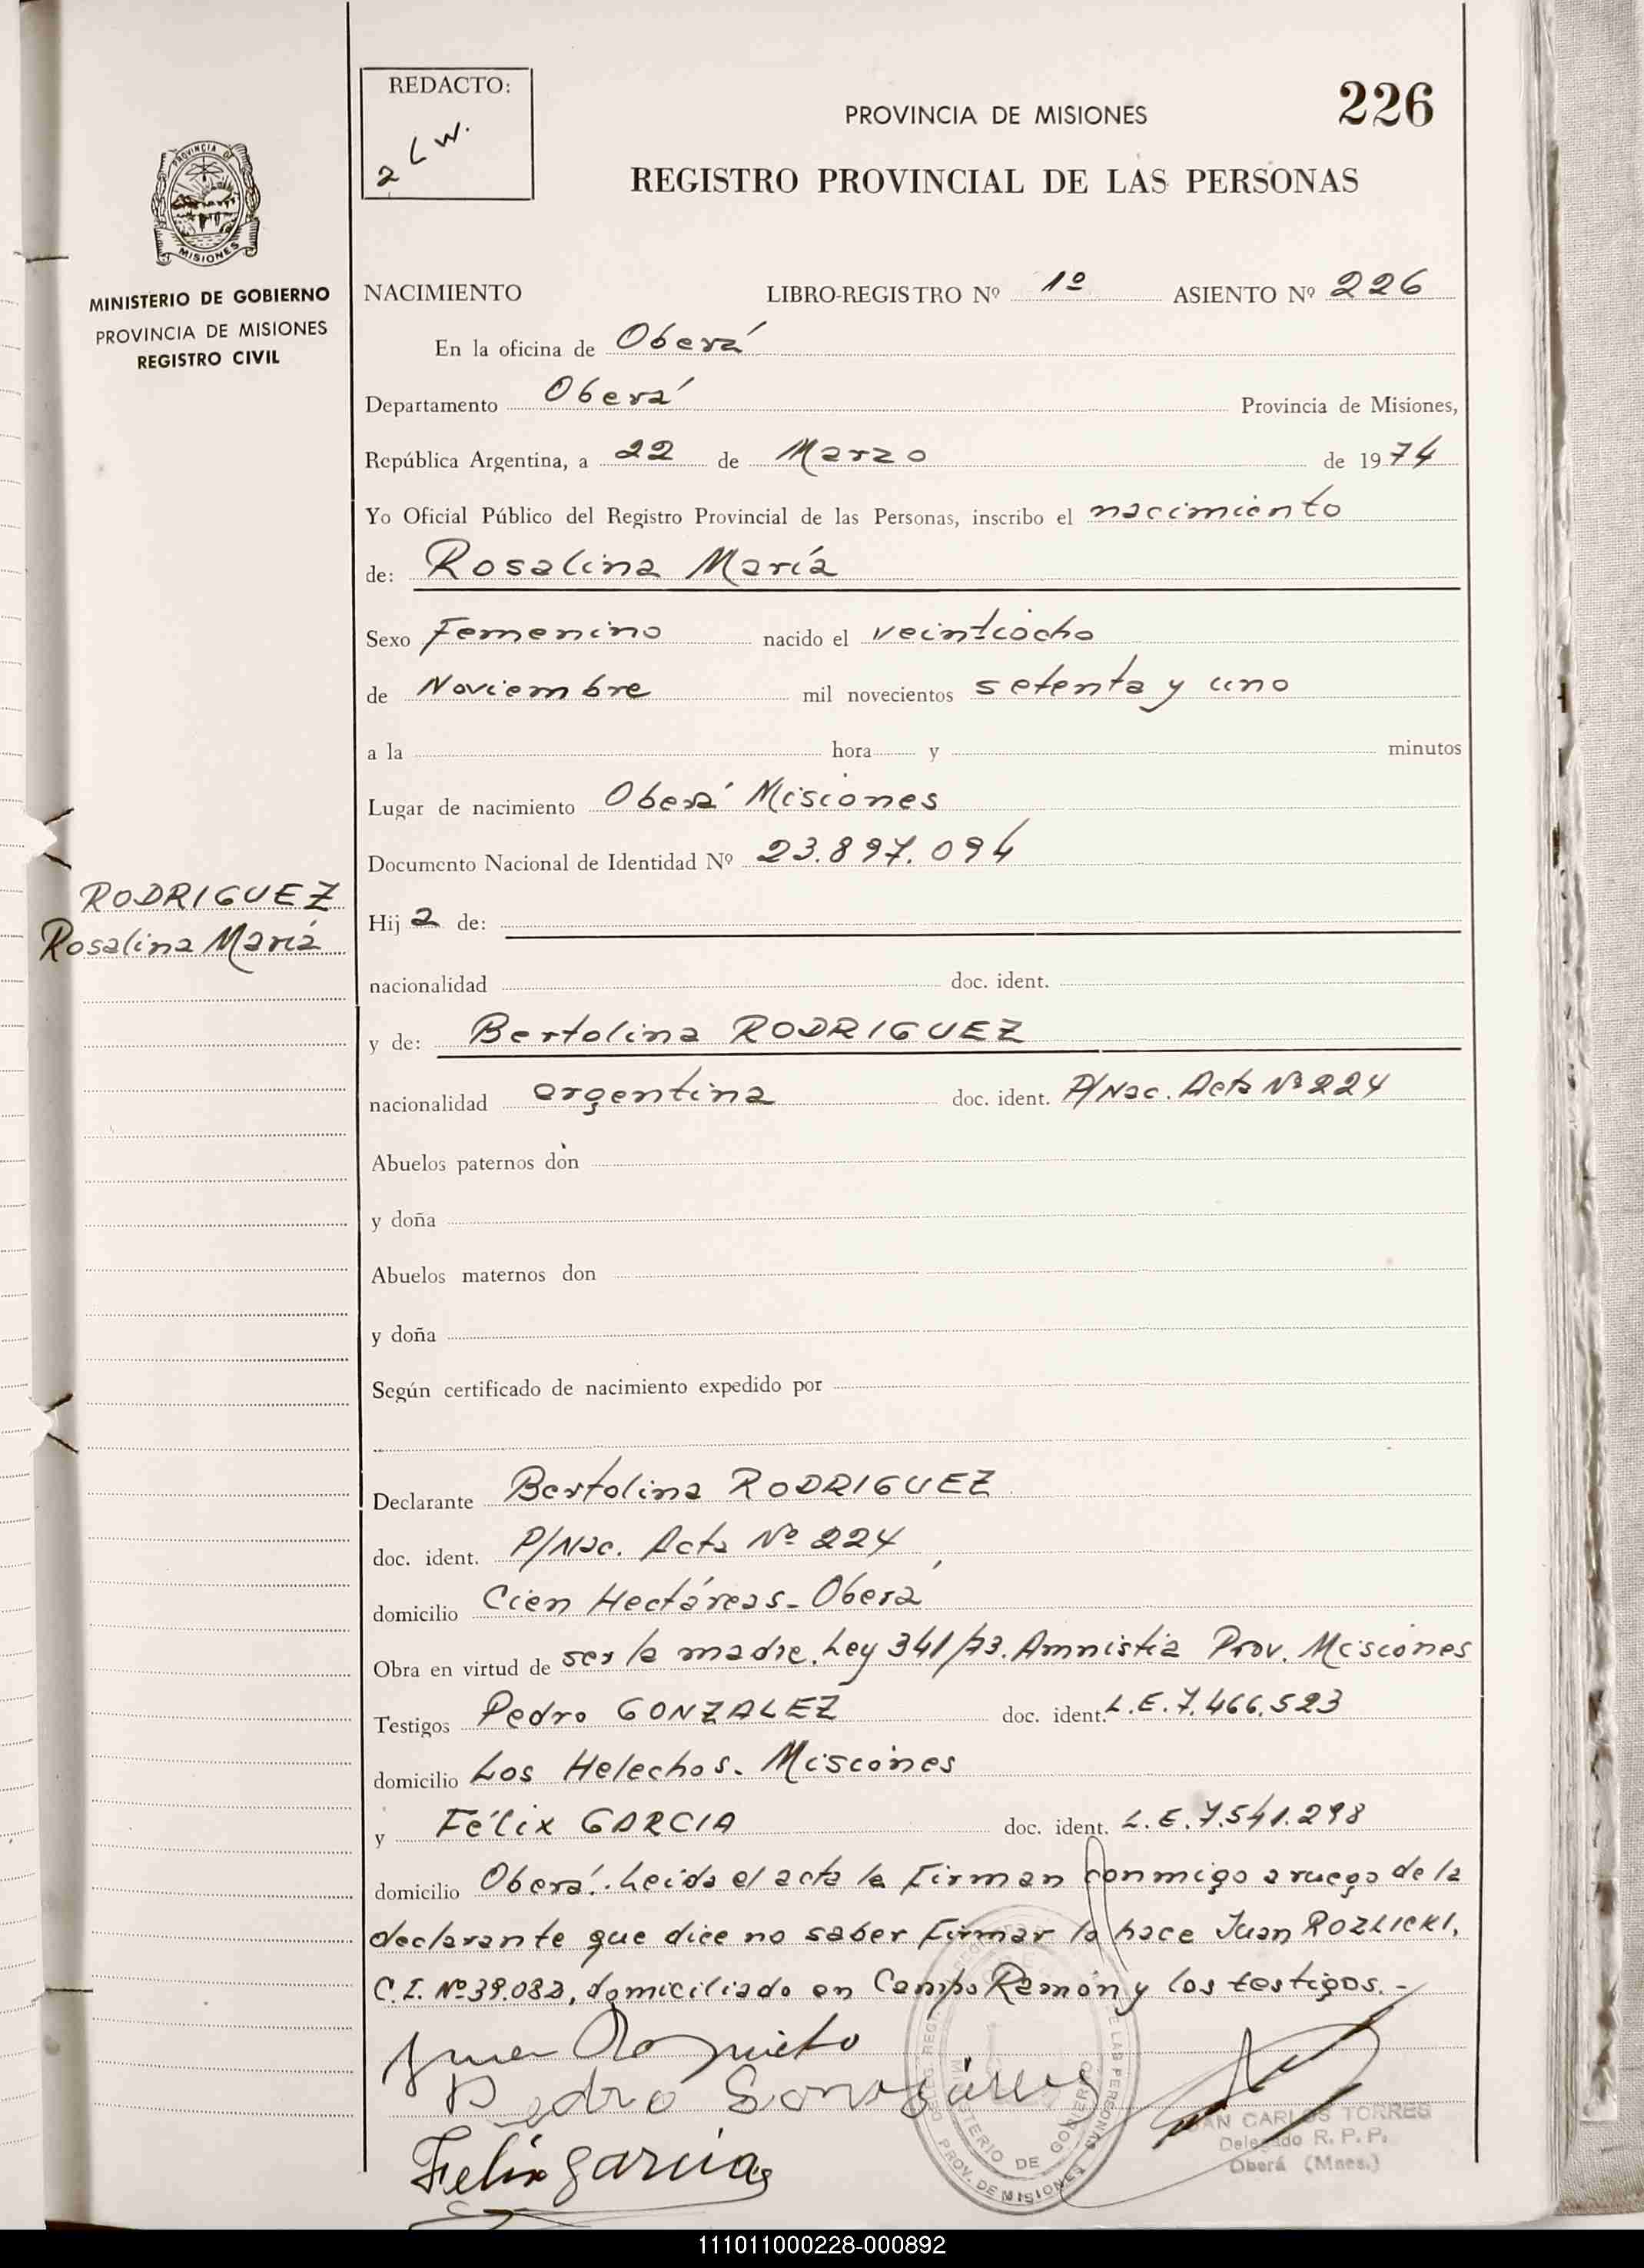 REDACTO:
PROVINCIA DE MISIONES
226
REGISTRO PROVINCIAL DE LAS PERSONAS
PROVINCIA DE
MISIONES
MINISTERIO DE GOBIERNO
PROVINCIA DE MISIONES
REGISTRO CIVIL
NACIMIENTO LIBRO-REGISTRO Nº 1º ASIENTO Nº 226
En la oficina de Oberá
Departamento Oberá Provincia de Misiones,
República Argentina, a 22 de Marzo de 1974
Yo Oficial Público del Registro Provincial de las Personas, inscribo el nacimiento
de: Rosalina María
Sexo Femenino nacido el veintiocho
de Noviembre mil novecientos setenta y uno
a la hora y minutos
Lugar de nacimiento Oberá Misiones
Documento Nacional de Identidad Nº 23.897.094
RODRIGUEZ
Rosalina María
Hija de:
nacionalidad doc. ident.
y de: Bertolina RODRIGUEZ
nacionalidad argentina doc. ident. P/Nac. Acta Nº 224
Abuelos paternos don
y doña
Abuelos maternos don
y doña
Según certificado de nacimiento expedido por
Declarante Bertolina RODRIGUEZ
doc. ident. P/Nac. Acta Nº 224
domicilio Cien Hectáreas - Oberá
Obra en virtud de ser la madre. Ley 341/73. Amnistia Prov. Misiones
Testigos Pedro GONZALEZ doc. ident. L.E. 7.466.523
domicilio Los Helechos. Misiones
y Félix GARCIA doc. ident. L.E. 7.541.298
domicilio Oberá. Leida el acta la firman conmigo a ruego de la
declarante que dice no saber firmar lo hace Juan ROZLICKI,
C.I. Nº 39.082, domiciliado en Campo Ramón y los testigos.-
Pedro Gonzales
Felix garcia
MINISTERIO DE GOBIERNO
PROV. DE MISIONES
JUAN CARLOS TORRES
Delegado R. P. P.
Oberá (Mnes.)
111011000228-000892